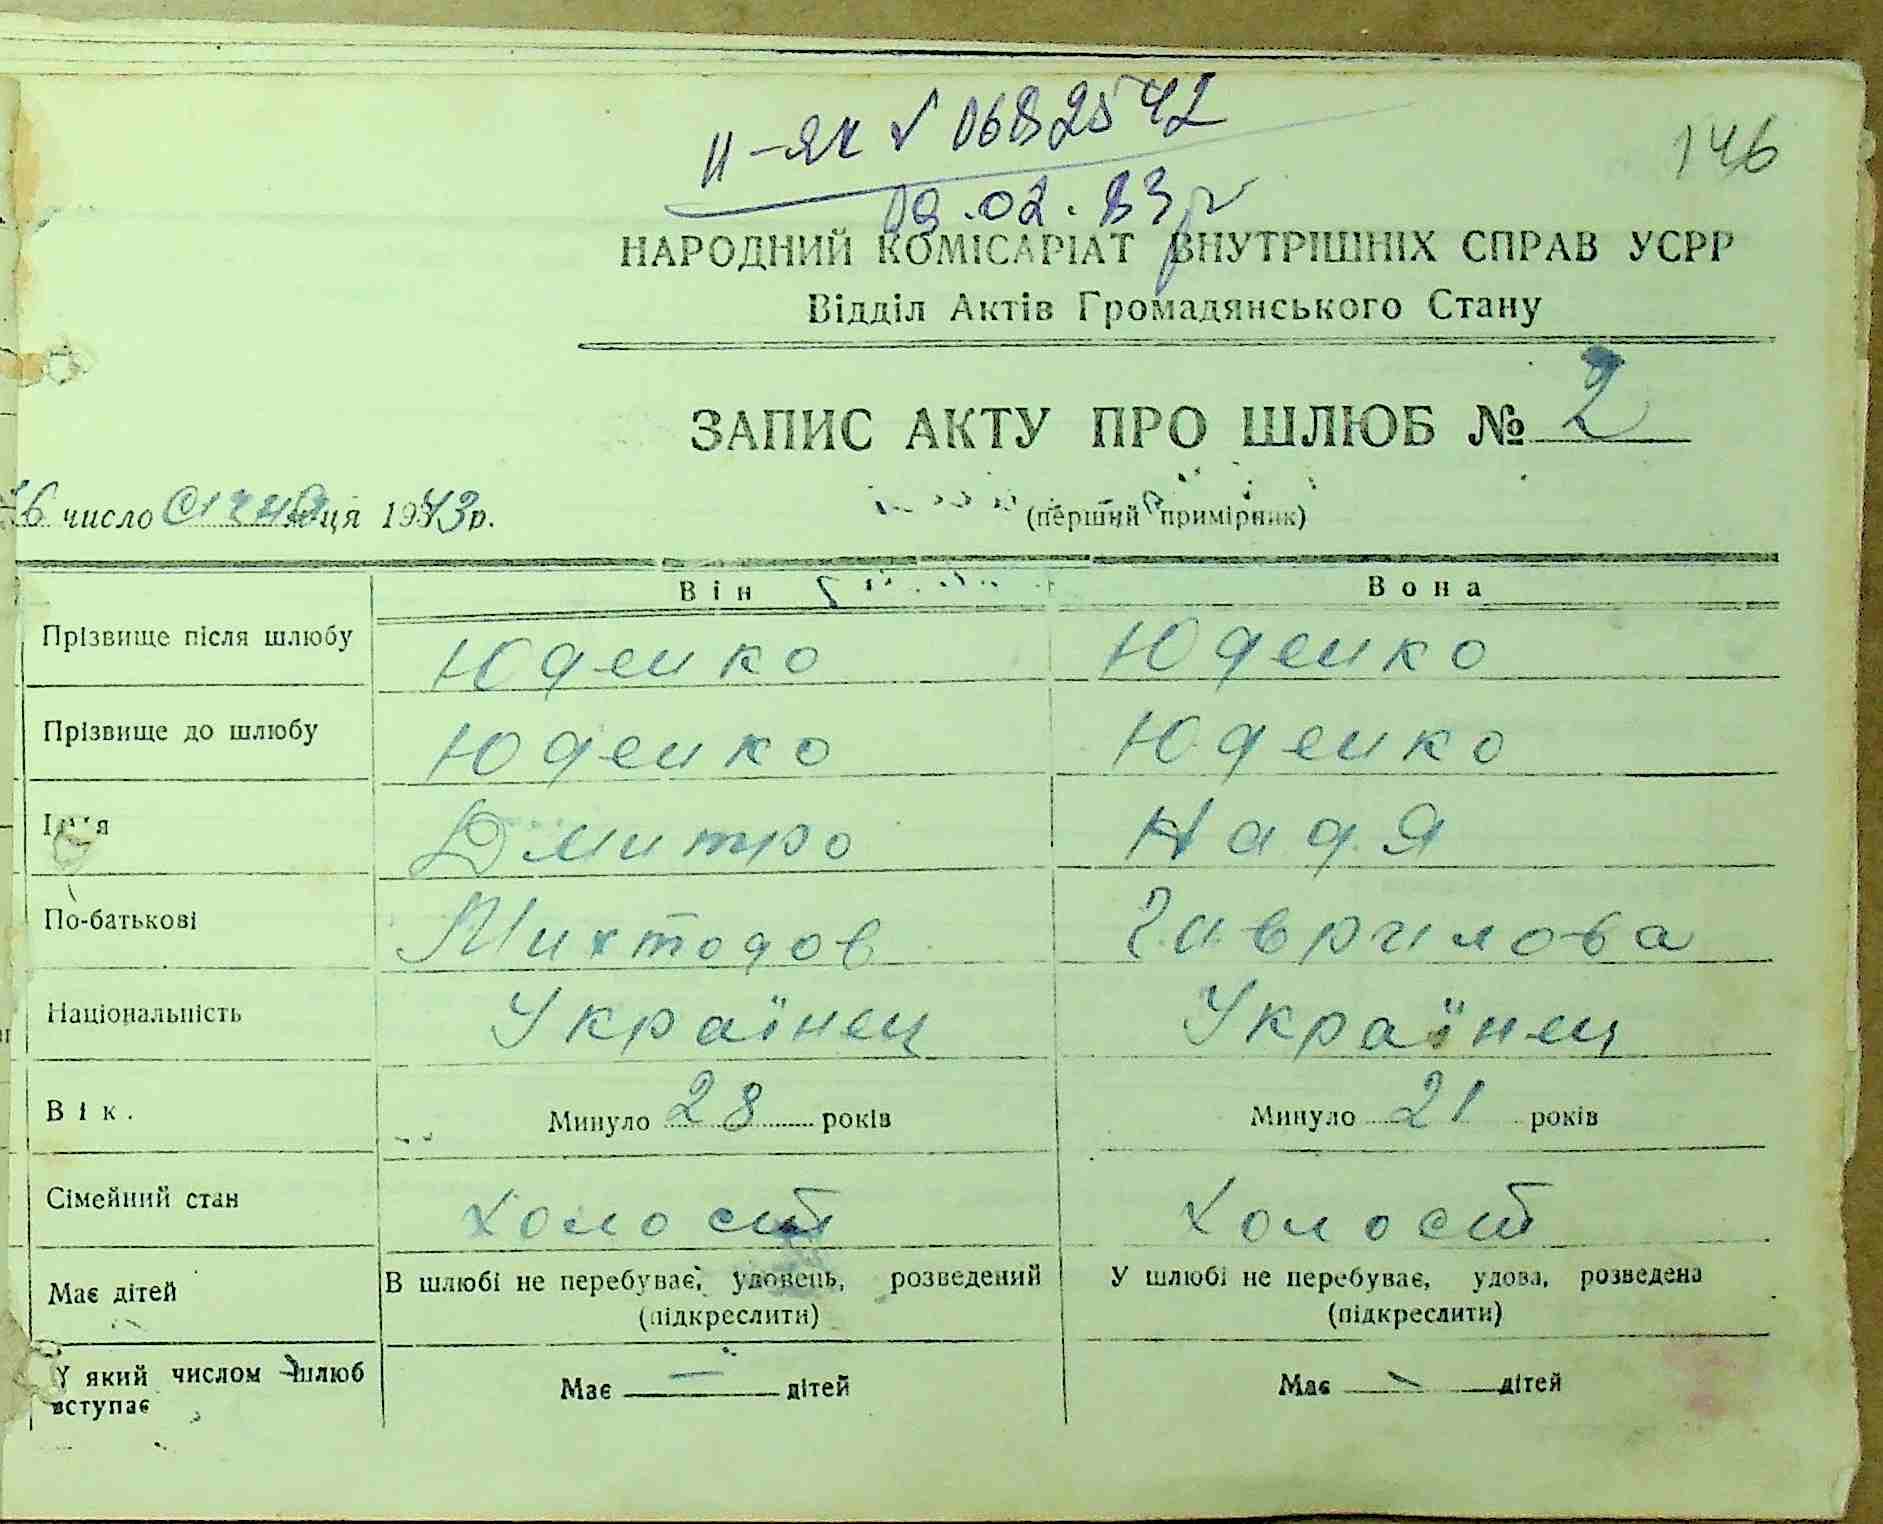 II-ЯК № 0682542
09.02.83р
146
НАРОДНИЙ КОМІСАРІАТ ВНУТРІШНІХ СПРАВ УСРР
Відділ Актів Громадянського Стану
ЗАПИС АКТУ ПРО ШЛЮБ № 2
6 число січня ця 1943 р.
(перший примірник)
Він Вона
Прізвище після шлюбу Юденко Юденко
Прізвище до шлюбу Юденко Юденко
Дмитро Надя
По-батькові Михтодов Гаврилова
Національність Українец Українец
Вік. Минуло 28 років Минуло 21 років
Сімейний стан Холост Холост
Має дітей В шлюбі не перебуває, удовець, розведений У шлюбі не перебуває, удова, розведена
(підкреслити) (підкреслити)
У який числом шлюб
вступає Має — дітей Має — дітей